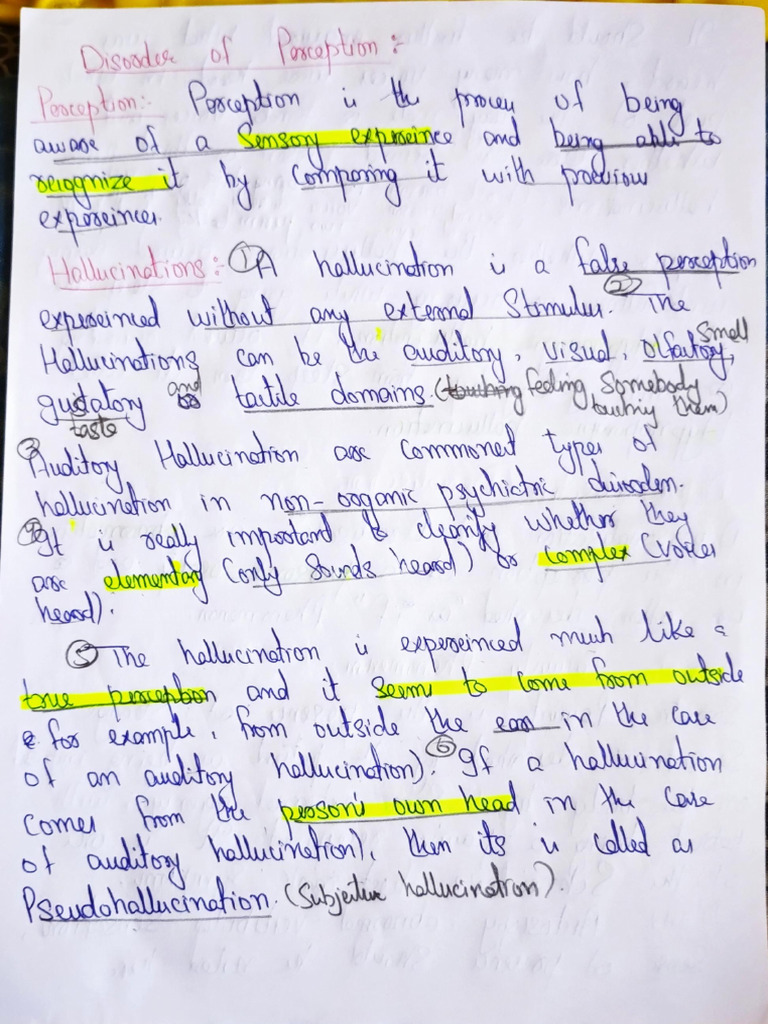 Disorder of Perception :-
Perception:- Perception is the process of being
aware of a Sensory expreince and being able to
recognize it by Comparing it with previous
expreinces.
Hallucinations : ① A hallucination is a false perception
expreinced without any external Stimulus. ② The
Hallucinations can be the auditory, visual, Olfactory, Smell
gustatory and tactile domains. (touching feeling Somebody
taste touching them)
③ Auditory Hallucination are Commonest types of
hallucination in non-organic psychiatric disorders.
④ It is really important to clarify whether they
are elementary (only Sounds heard) or complex (voices
heard).
⑤ The hallucination is expreinced much like a
true perception and it Seems to Come from outside
for example, from outside the ears in the case
of an auditory hallucination). ⑥ If a hallucination
comes from the person's own head in the case
of auditory hallucination), then its is called as
Pseudohallucination. (Subjective hallucination).